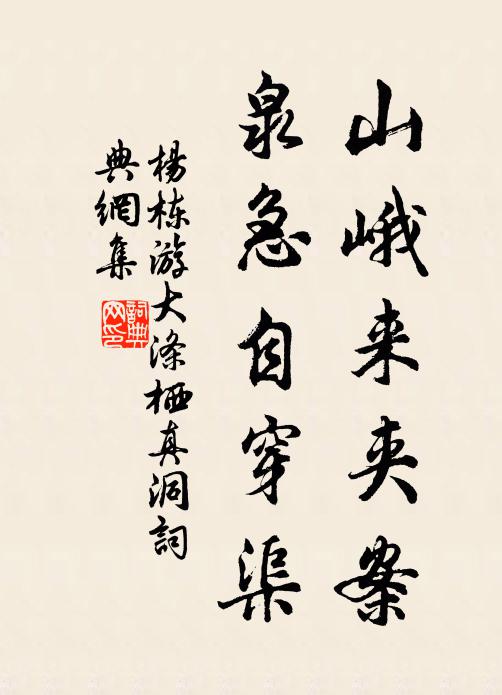 山峨来夹案
泉急自穿渠
杨栋游大涤栖真洞詞
典網集
詞典网印